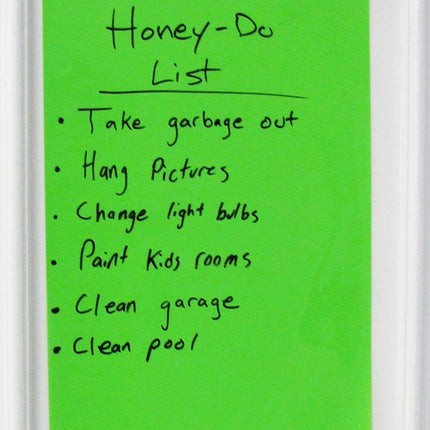 Honey-Do
List
• Take garbage out
• Hang Pictures
• Change light bulbs
• Paint Kids rooms
• Clean garage
• Clean pool